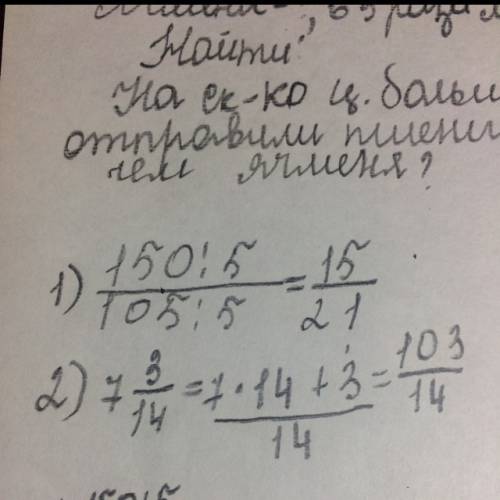 Найти:
На ск-ко ц. больш
отправили пшени
чем ячменя?
1) 150:5/105:5 = 15/21
2) 7 3/14 = 7·14+3/14 = 103/14